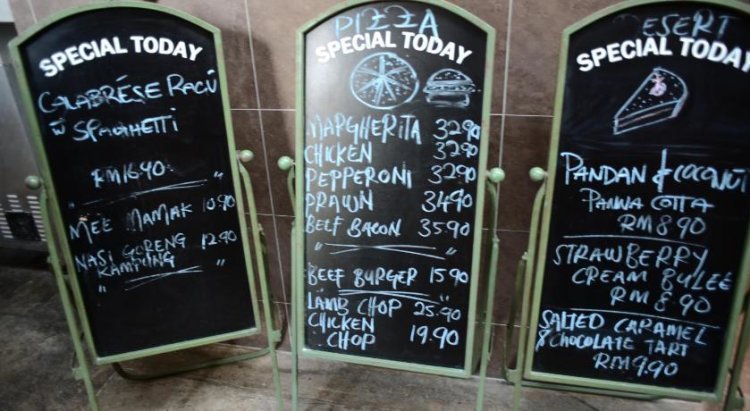 SPECIAL TODAY
CALABRÉSE RAGÚ
w SPAGHETTI
RM16.90
" "
MEE MAMAK 10.90
NASI GORENG 12.90
KAMPUNG
" "
PIZZA
SPECIAL TODAY
MARGHERITA 32.90
CHICKEN 32.90
PEPPERONI 32.90
PRAWN 34.90
BEEF BACON 35.90
" "
BEEF BURGER 15.90
" "
LAMB CHOP 25.90
CHICKEN
CHOP 19.90
DESERT
SPECIAL TODAY
PANDAN & COCONUT
PANNA COTTA
RM 8.90
STRAWBERRY
CREAM BULEÉ
RM 8.90
SALTED CARAMEL
& CHOCOLATE TART
RM 9.90